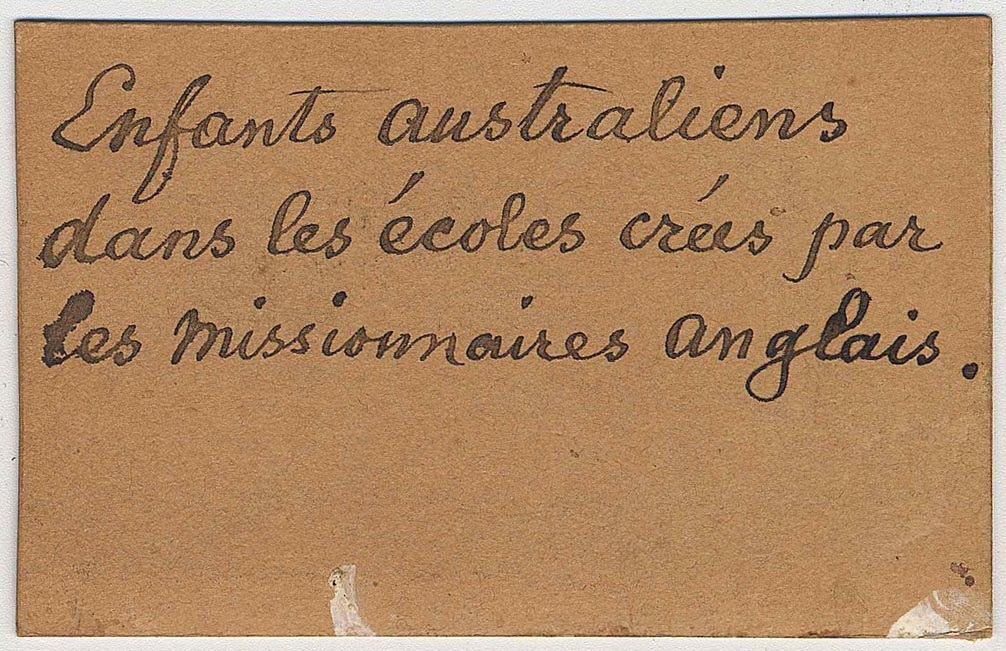 Enfants australiens
dans les écoles crées par
les missionnaires anglais.